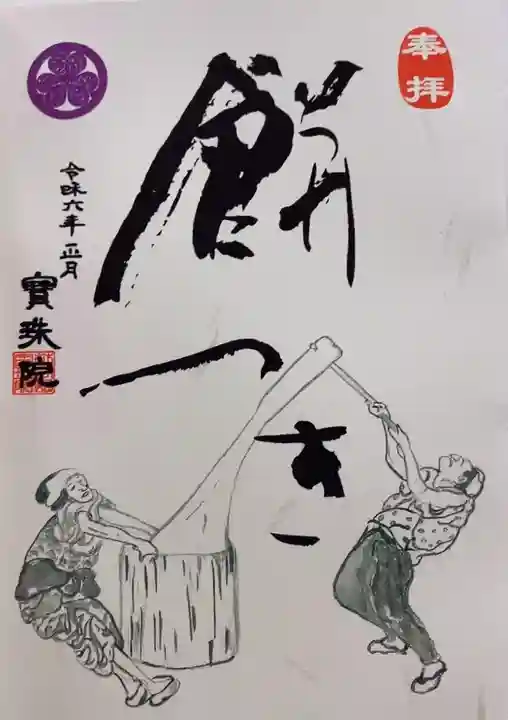 奉拝
餅つき
令和六年正月
寳珠院